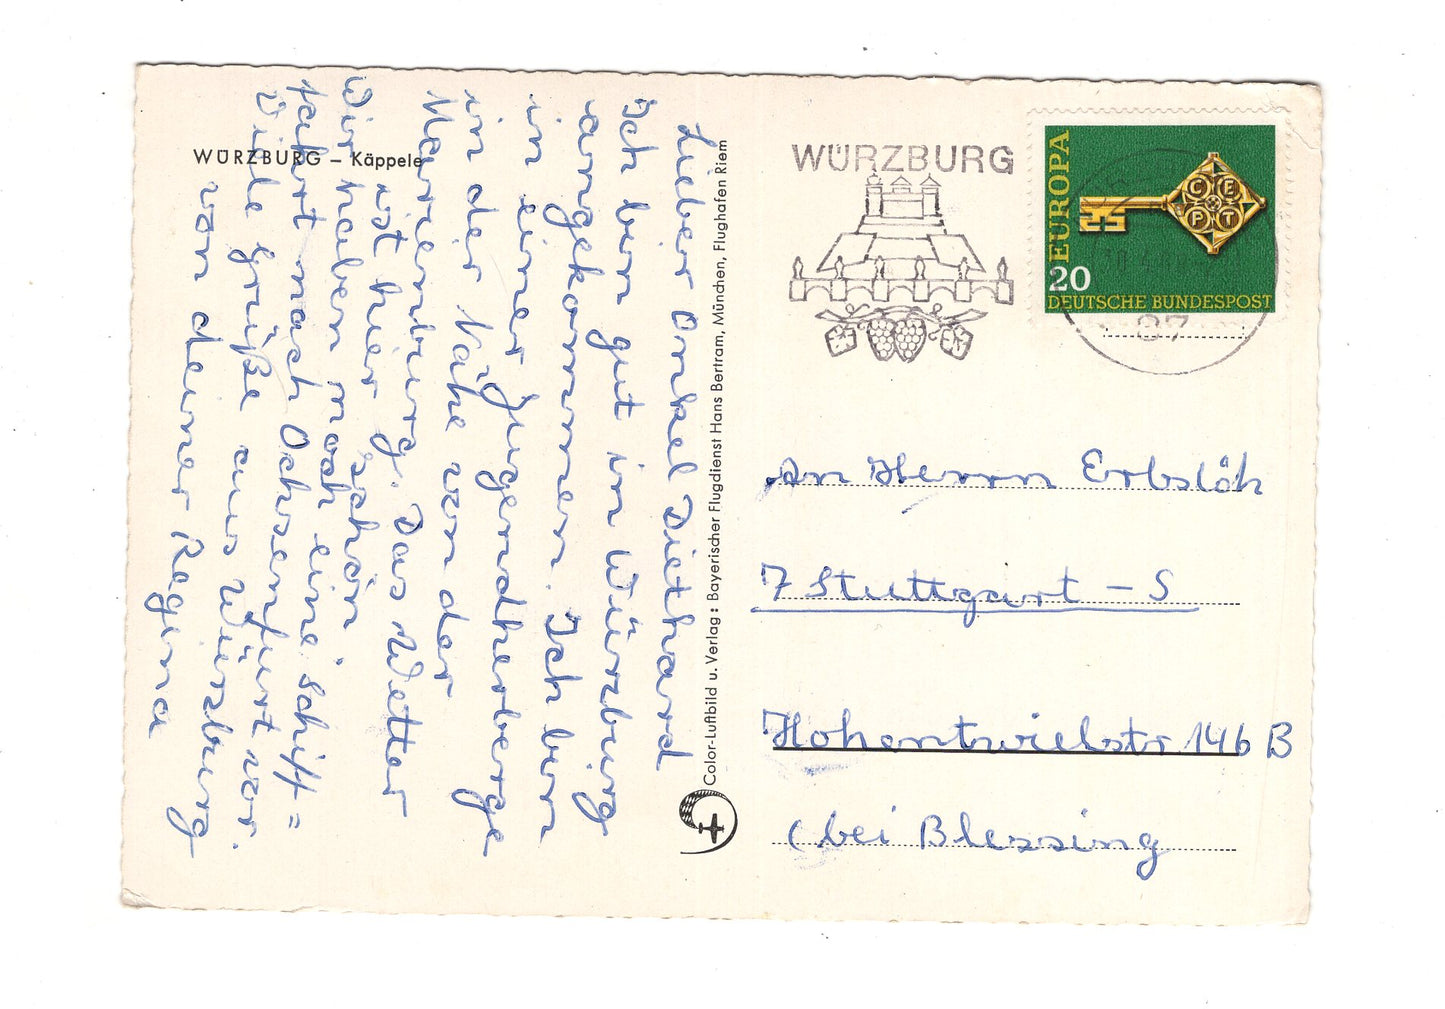 WÜRZBURG – Käppele
Lieber Onkel Diethard
Ich bin gut in Würzburg
angekommen. Ich bin
in einer Jugendherberge
in der Nähe von der
Marienburg. Das Wetter
ist hier schön.
Wir haben noch eine Schiff=
fahrt nach Ochsenfurt vor.
Viele Grüße aus Würzburg
von deiner Regina
Color-Luftbild u. Verlag: Bayerischer Flugdienst Hans Bertram, München, Flughafen Riem
WÜRZBURG
EUROPA
CEPT
20
DEUTSCHE BUNDESPOST
87
An Herrn Erbslöh
7 Stuttgart – S
Hohentwielstr. 146 B
(bei Blessing